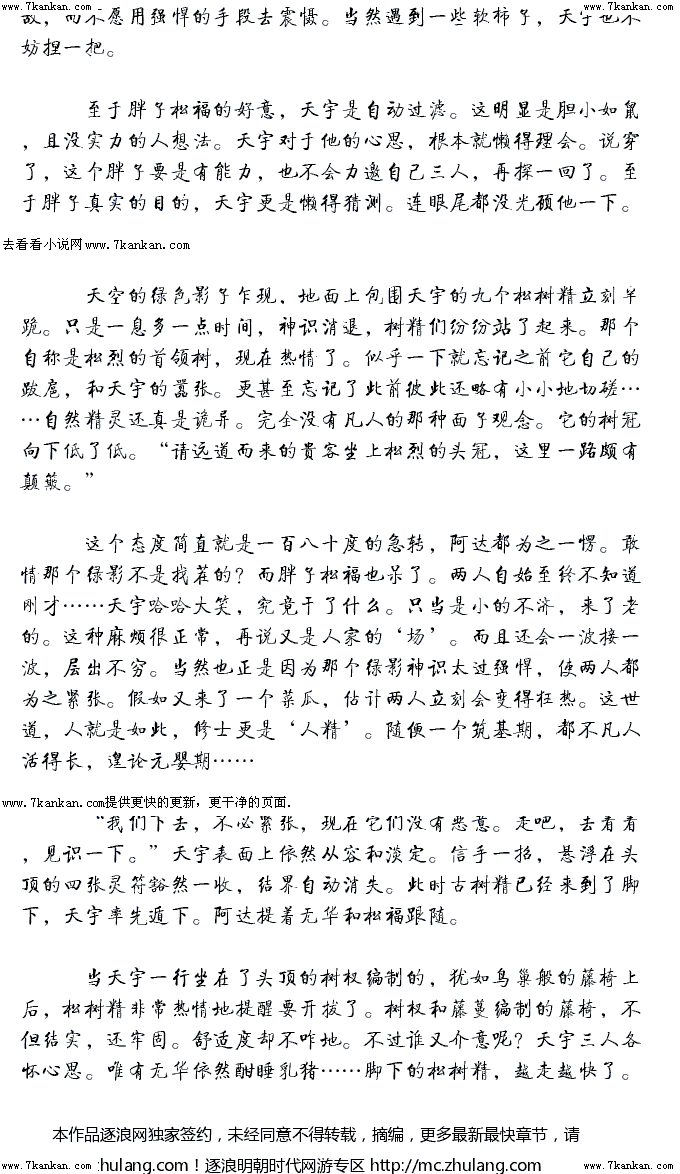 www.7kankan.com - www.7kankan.com
敌，而不愿用强悍的手段去震慑。当然遇到一些软柿子，天宇也不
妨捏一把。
至于胖子松福的好意，天宇是自动过滤。这明显是胆小如鼠
，且没实力的人想法。天宇对于他的心思，根本就懒得理会。说穿
了，这个胖子要是有能力，也不会力邀自己三人，再探一回了。至
于胖子真实的目的，天宇更是懒得猜测。连眼尾都没光顾他一下。
去看看小说网www.7kankan.com
天空的绿色影子乍现，地面上包围天宇的九个松树精立刻半
跪。只是一息多一点时间，神识消退，树精们纷纷站了起来。那个
自称是松烈的首领树，现在热情了。似乎一下就忘记之前它自己的
跋扈，和天宇的嚣张。更甚至忘记了此前彼此还略有小小地切磋…
…自然精灵还真是诡异。完全没有凡人的那种面子观念。它的树冠
向下低了低。“请远道而来的贵客坐上松烈的头冠，这里一路颇有
颠簸。”
这个态度简直就是一百八十度的急转，阿达都为之一愣。敢
情那个绿影不是找茬的？而胖子松福也呆了。两人自始至终不知道
刚才……天宇哈哈大笑，究竟干了什么。只当是小的不济，来了老
的。这种麻烦很正常，再说又是人家的‘场’。而且还会一波接一
波，层出不穷。当然也正是因为那个绿影神识太过强悍，使两人都
为之紧张。假如又来了一个菜瓜，估计两人立刻会变得狂热。这世
道，人就是如此，修士更是‘人精’。随便一个筑基期，都不凡人
活得长，遑论元婴期……
www.7kankan.com提供更快的更新，更干净的页面.
“我们下去，不必紧张，现在它们没有恶意。走吧，去看看
，见识一下。”天宇表面上依然从容和淡定。信手一招，悬浮在头
顶的四张灵符豁然一收，结界自动消失。此时古树精已经来到了脚
下，天宇率先遁下。阿达提着无华和松福跟随。
当天宇一行坐在了头顶的树杈编制的，犹如鸟巢般的藤椅上
后，松树精非常热情地提醒要开拔了。树杈和藤蔓编制的藤椅，不
但结实，还牢固。舒适度却不咋地。不过谁又介意呢？天宇三人各
怀心思。唯有无华依然酣睡乳猪……脚下的松树精，越走越快了。
本作品逐浪网独家签约，未经同意不得转载，摘编，更多最新最快章节，请
www.7kankan.com zhulang.com！逐浪明朝时代网游专区 http://mc.zhulang.com www.7kankan.com